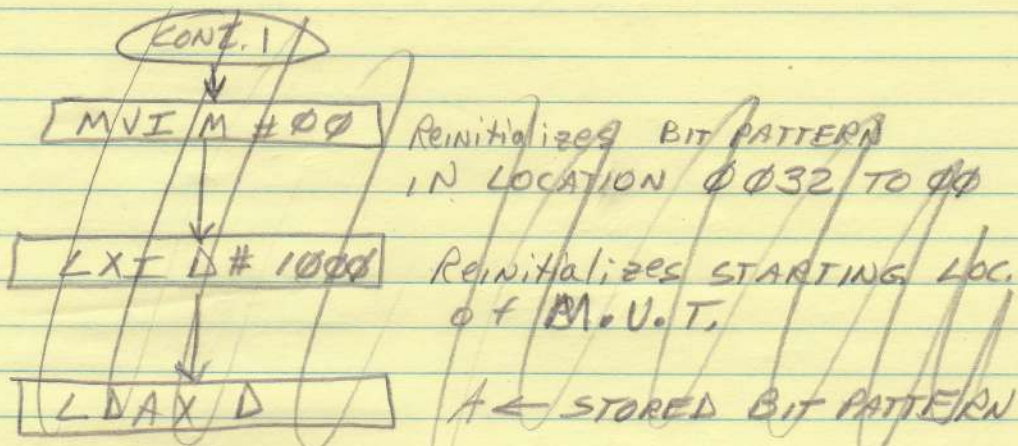 CONT. 1
MVI M #ØØ Reinitializes BIT PATTERN
IN LOCATION ØØ32 TO ØØ
LXI D# 1ØØØ Reinitializes STARTING LOC.
of M.U.T.
LDAX D A ← STORED BIT PATTERN